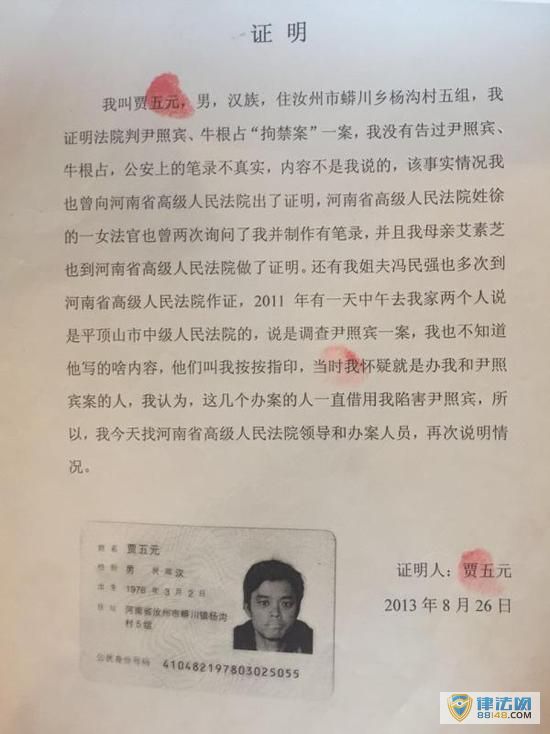 证 明
我叫贾五元，男，汉族，住汝州市蟒川乡杨沟村五组，我
证明法院判尹照宾、牛根占“拘禁案”一案，我没有告过尹照宾、
牛根占，公安上的笔录不真实，内容不是我说的，该事实情况我
也曾向河南省高级人民法院出了证明，河南省高级人民法院姓徐
的一女法官也曾两次询问了我并制作有笔录，并且我母亲艾素芝
也到河南省高级人民法院做了证明。还有我姐夫冯民强也多次到
河南省高级人民法院作证，2011 年有一天中午去我家两个人说
是平顶山市中级人民法院的，说是调查尹照宾一案，我也不知道
他写的啥内容，他们叫我按按指印，当时我怀疑就是办我和尹照
宾案的人，我认为，这几个办案的人一直借用我陷害尹照宾，所
以，我今天找河南省高级人民法院领导和办案人员，再次说明情
况。
姓名 贾五元
性别 男 民族 汉
出生 1978 年 3 月 2 日
住址 河南省汝州市蟒川镇杨沟
村5组
公民身份号码 410482197803025055
证明人：贾五元
2013 年 8 月 26 日
律法网
88148.COM